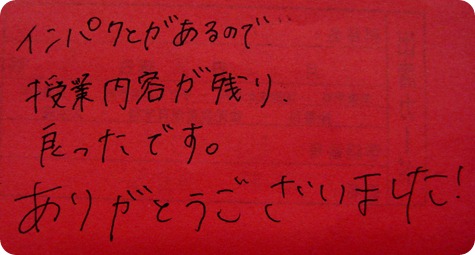 インパクトがあるので
授業内容が残り、
良ったです。
ありがとうございました!